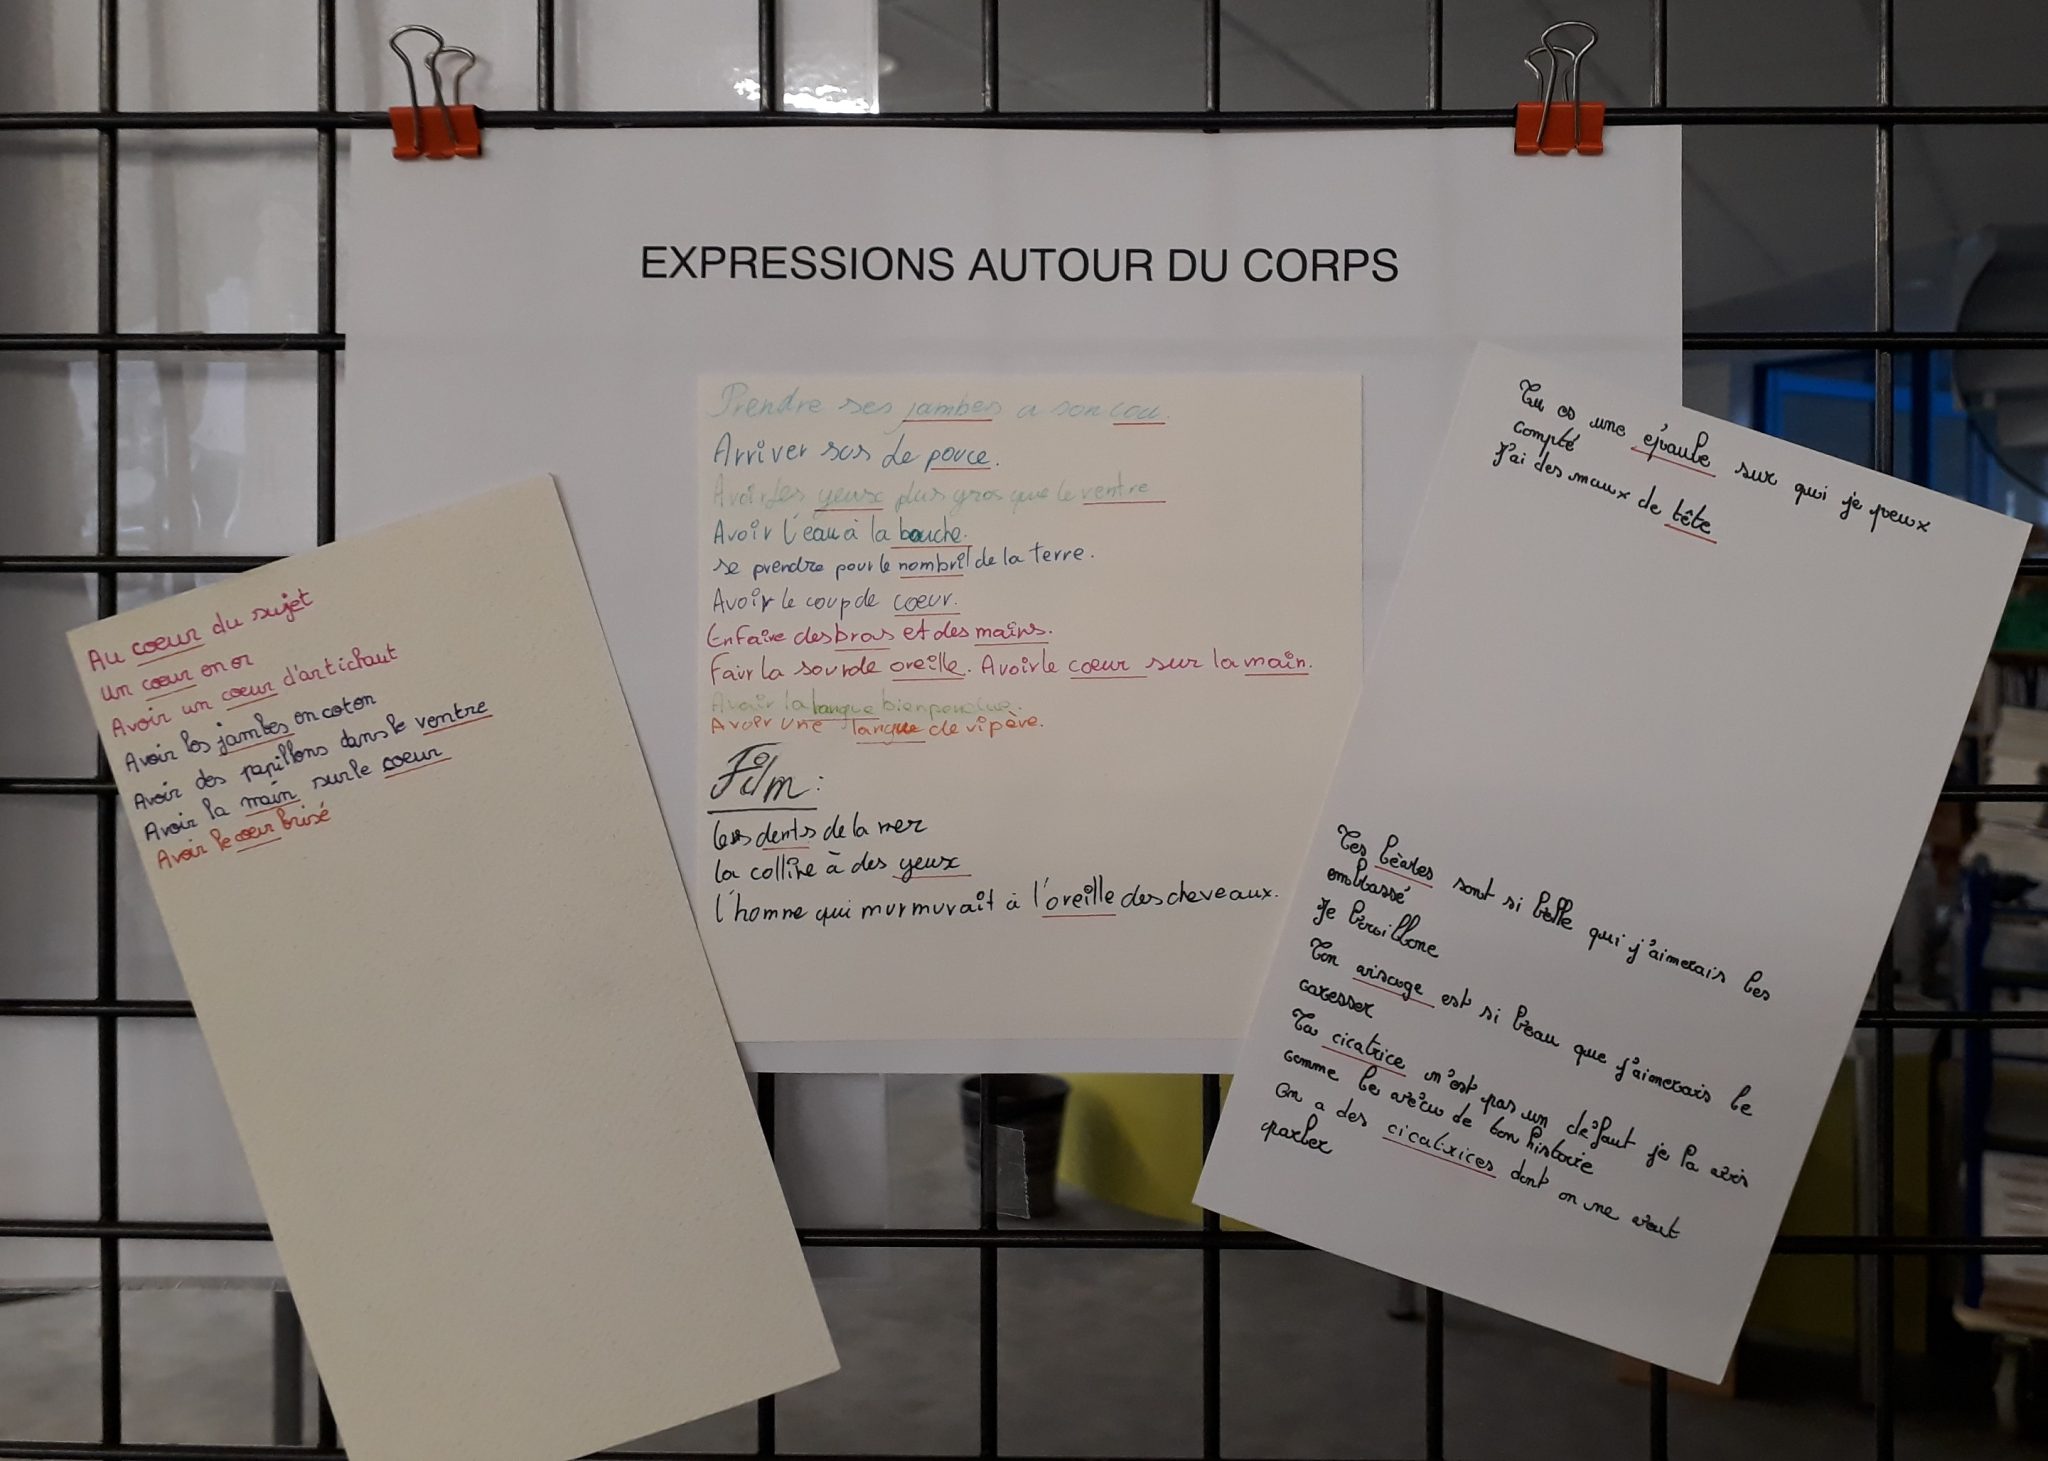 EXPRESSIONS AUTOUR DU CORPS
Au coeur du sujet
un coeur en or
Avoir un coeur d'artichaut
Avoir les jambes en coton
Avoir des papillons dans le ventre
Avoir la main sur le coeur
Avoir le coeur brisé
Prendre ses jambes a son cou.
Arriver sus le pouce.
Avoir les yeux plus gros que le ventre
Avoir l'eau à la bouche.
se prendre pour le nombril de la terre.
Avoir le coup de coeur.
En faire des bras et des mains.
Fair la sourde oreille. Avoir le coeur sur la main.
Avoir la langue bien pendue.
Avoir une langue de vipère.
Film :
les dents de la mer
la colline à des yeux
l'homme qui murmurait à l'oreille des cheveaux.
Tu es une épaule sur qui je peux
compté
J'ai des maux de tête
Tes lèvres sont si belle qui j'aimerais les
embrassé
Je
Ton visage est si beau que j'aimerais le
caresser
Ta cicatrice n'est pas un défaut je la vois
comme le vécu de ton histoire
on a des cicatrices dont on ne veut
parler